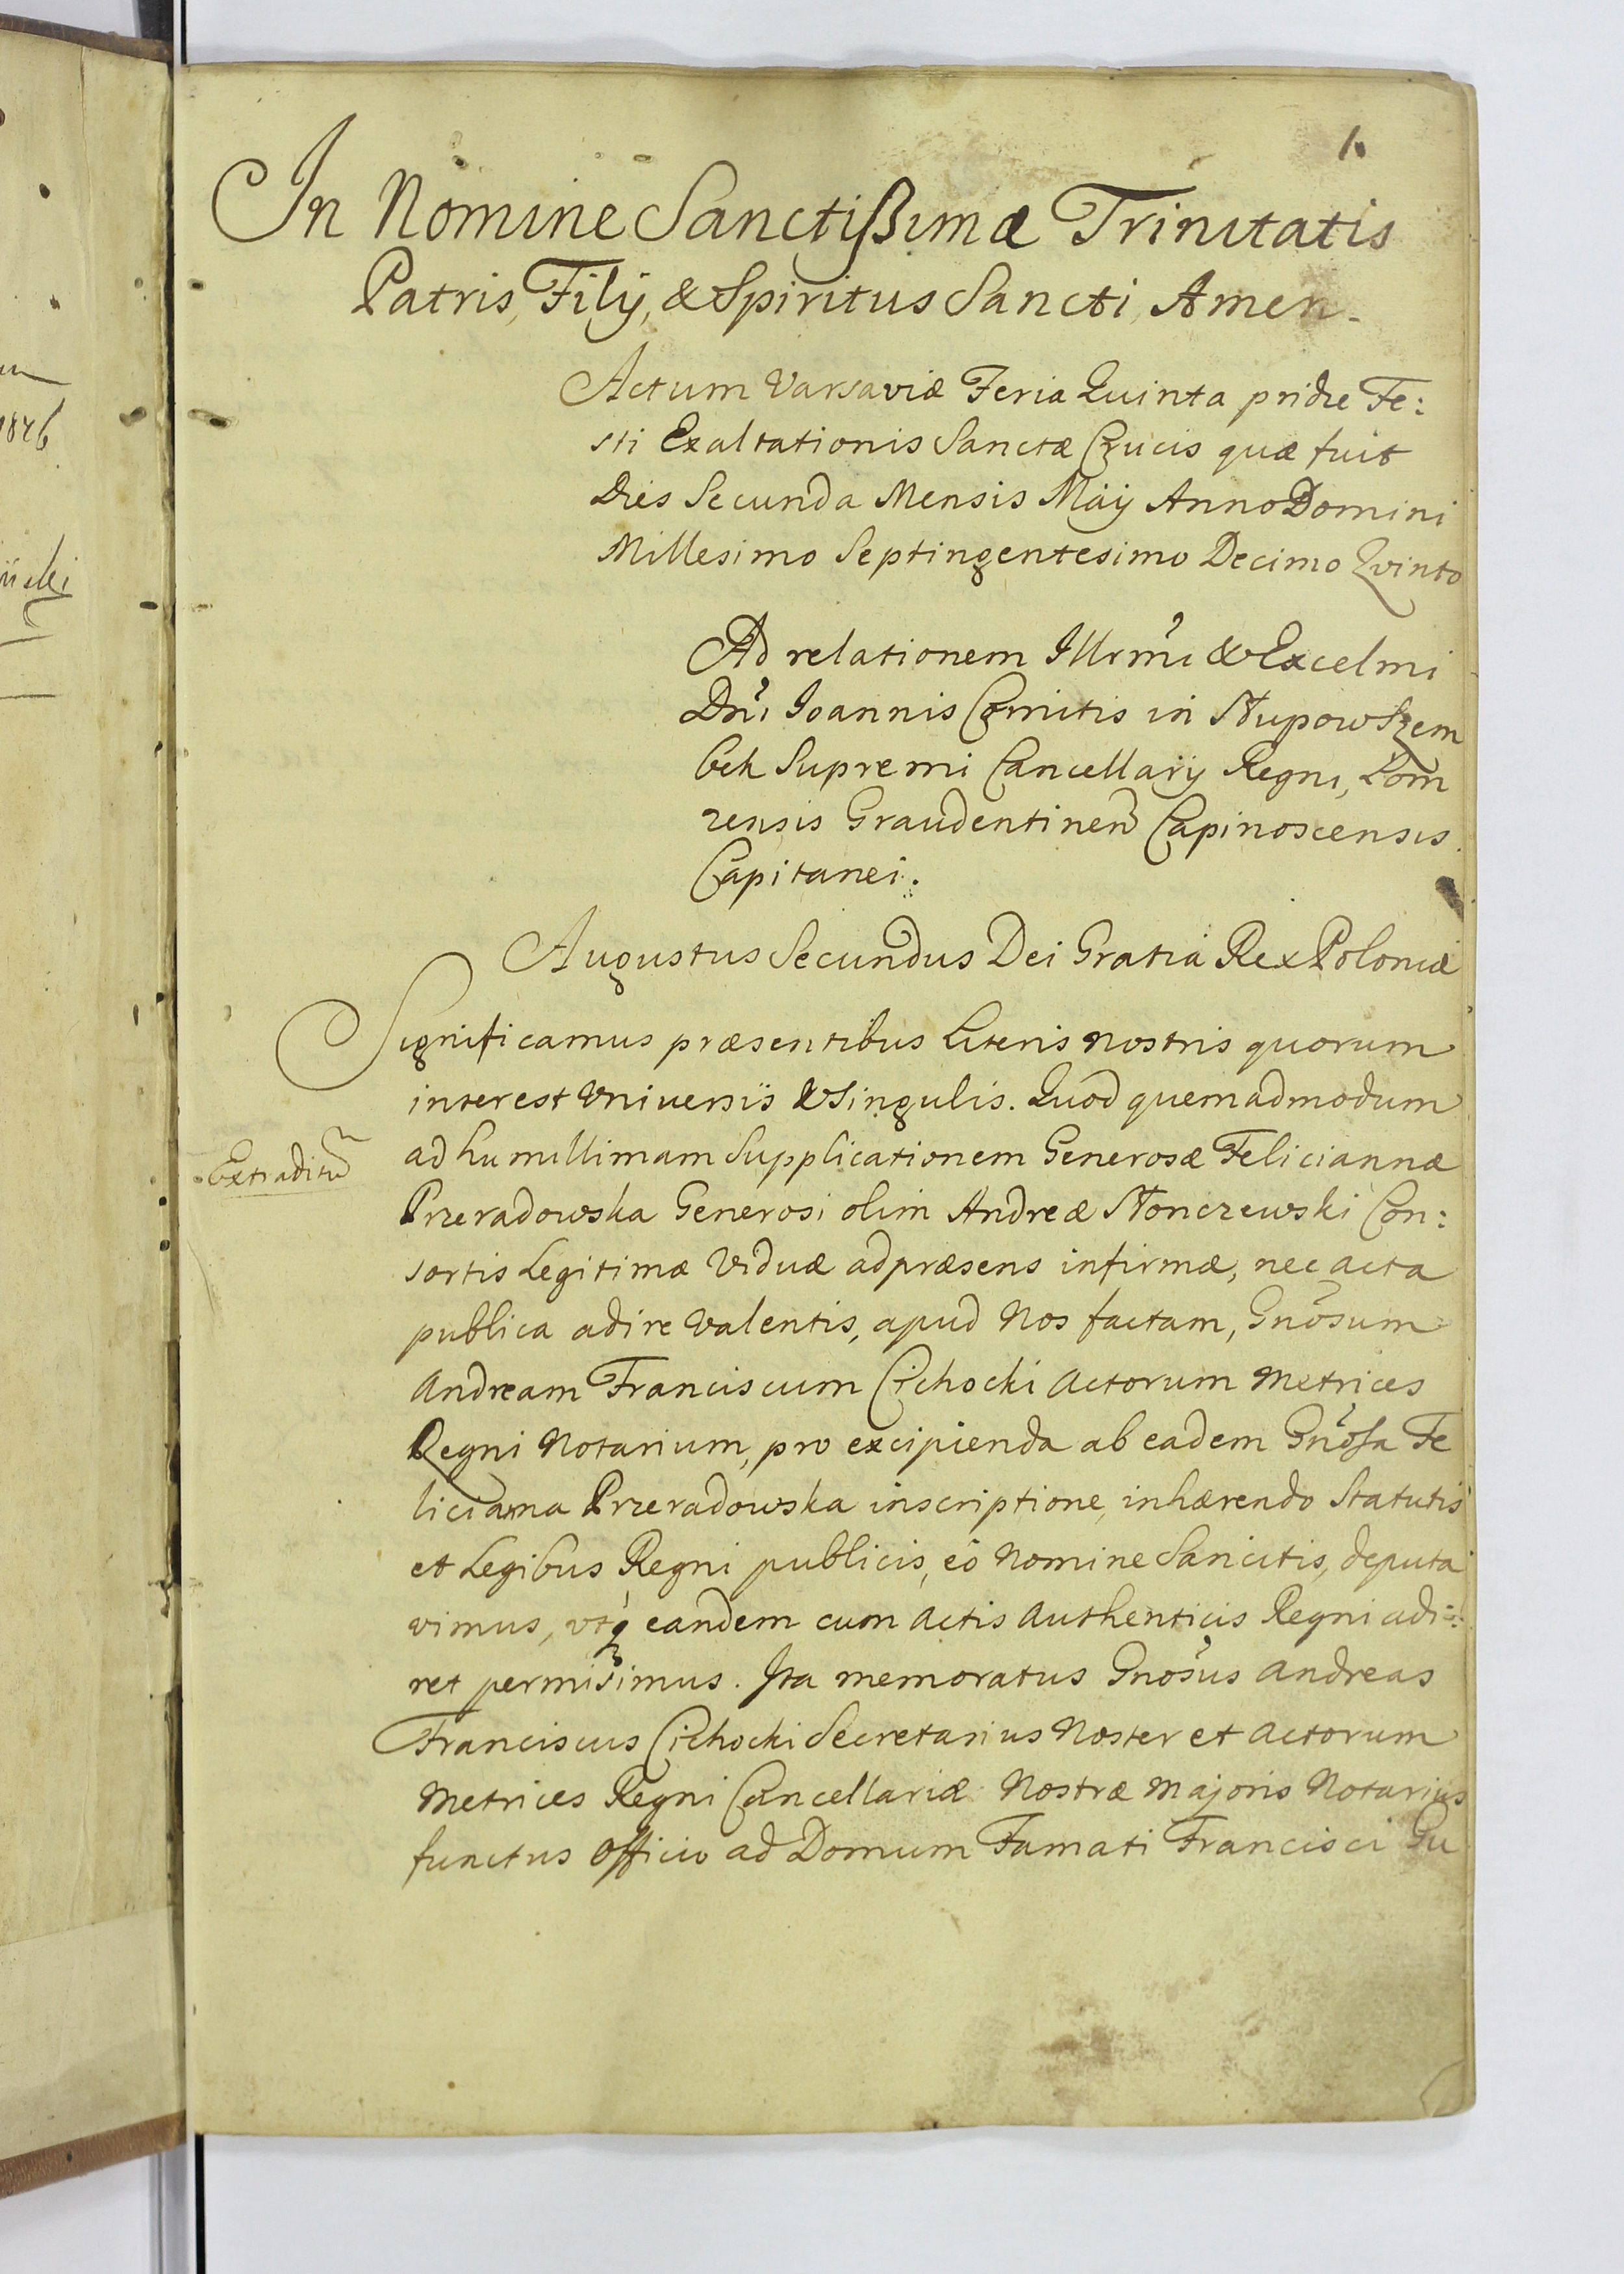 1.
In Nomine Sanctißimæ Trinitatis
Patris, Filij, & Spiritus Sancti, Amen.
Actum Varsaviæ Feria Quinta pridie Fe:
sti Exaltationis Sanctæ Crucis quæ fuit
Dies Secunda Mensis Maij Anno Domini
Millesimo Septingentesimo Decimo Qvinto
Ad relationem Illrmi & Excelmi
Dni Ioannis Comitis in Słupow Szem
bek Supremi Cancellarij Regni, Łom
zensis Graudentinen Capinoscensis
Capitanei.
Augustus Secundus Dei Gratia Rex Poloniæ
Significamus præsentibus Literis nostris quorum
interest Vniuersis & Singulis. Quod quemadmodum
Extraditum
ad humillimam Supplicationem Generosæ Feliciannæ
Przeradowska Generosi olim Andreæ Słonczewski Con:
sortis Legitimæ Viduæ ad præsens infirmæ, nec acta
publica adire Valentis, apud Nos factam, Gnosum
Andream Franciscum Cichocki Actorum Metrices
Regni Notarium, pro excipienda ab eadem Gnosa Fe
licianna Przeradowska inscriptione, inhærendo Statutis
et Legibus Regni publicis, eo Nomine Sancitis, deputa
vimus, vtq eandem cum Actis Authenticis Regni adi:
ret permisimus. Ita memoratus Gnosus Andreas
Franciscus Cichocki Secretarius Noster et Actorum
Metrices Regni Cancellariæ Nostræ Majoris Notarius
functus Officio ad Domum Famati Francisci Gu
1826